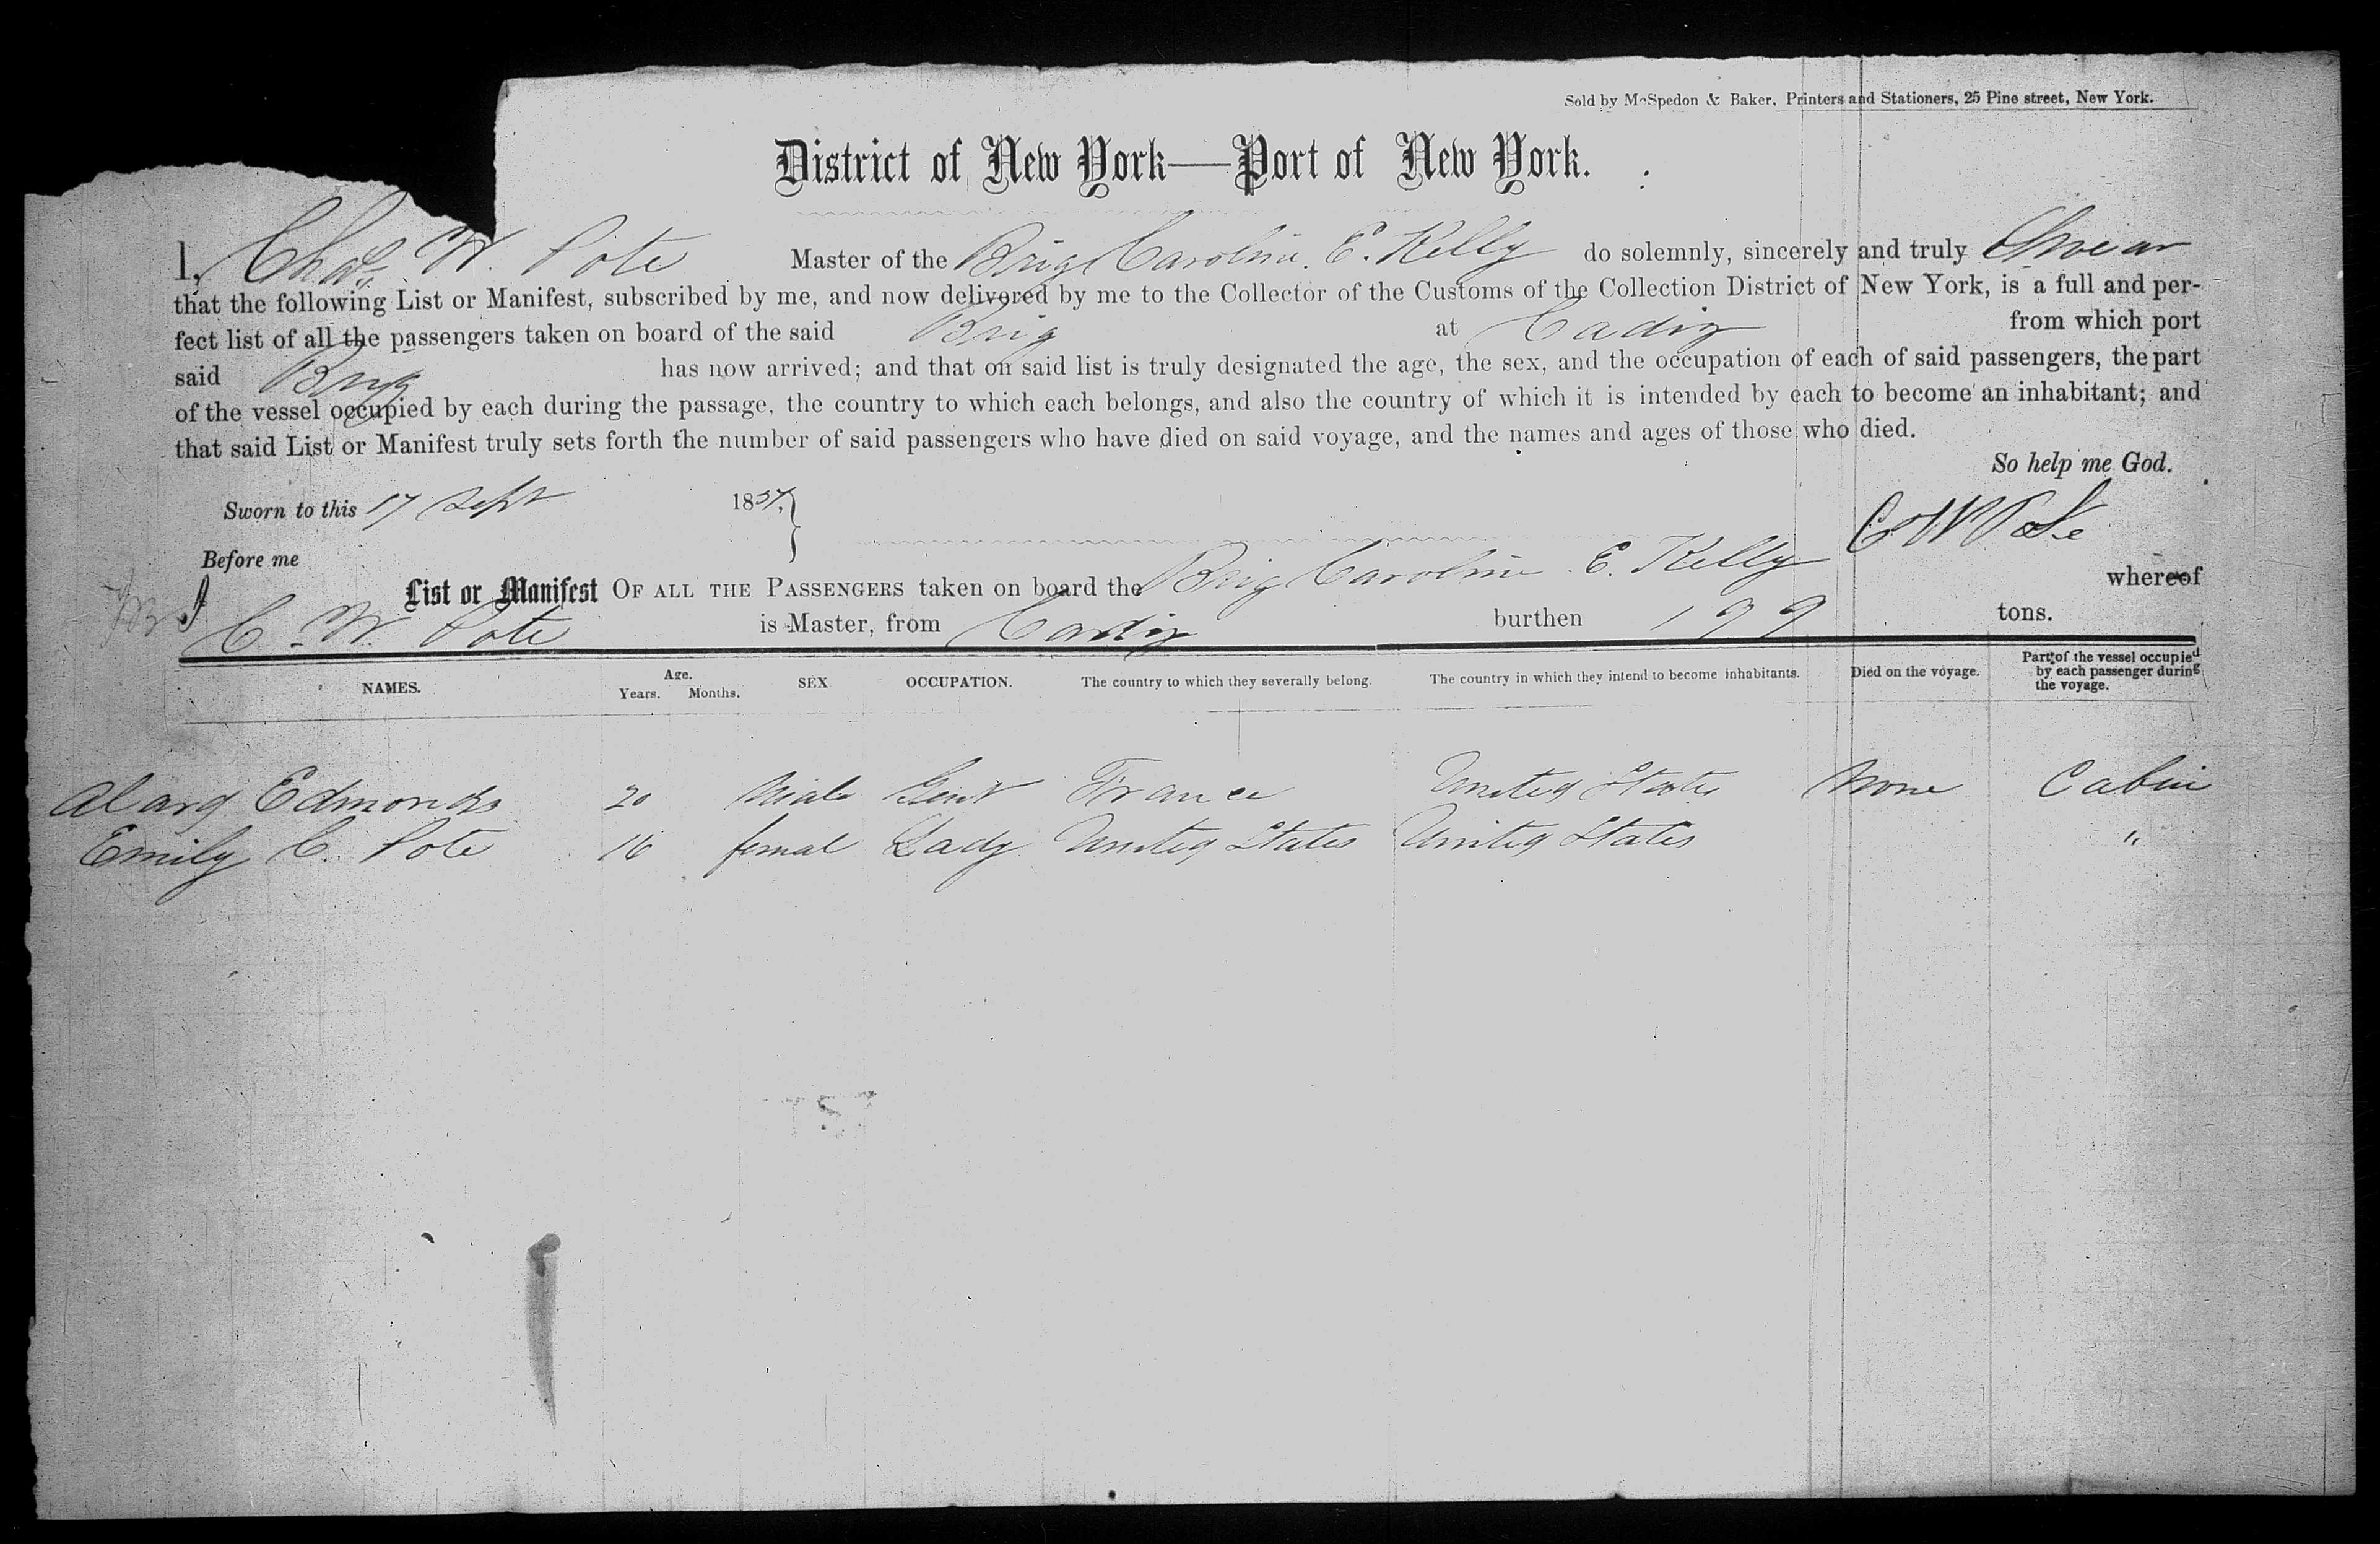 Sold by McSpedon & Baker, Printers and Stationers, 25 Pine street, New York.
District of New York—Port of New York.
I, Chas. W. Pote Master of the Brig Caroline E. Kelly do solemnly, sincerely and truly Swear
that the following List or Manifest, subscribed by me, and now delivered by me to the Collector of the Customs of the Collection District of New York, is a full and per-
fect list of all the passengers taken on board of the said Brig at Cadiz from which port
said Brig has now arrived; and that on said list is truly designated the age, the sex, and the occupation of each of said passengers, the part
of the vessel occupied by each during the passage, the country to which each belongs, and also the country of which it is intended by each to become an inhabitant; and
that said List or Manifest truly sets forth the number of said passengers who have died on said voyage, and the names and ages of those who died.
So help me God.
Sworn to this 17 Sept 1857,
C W Pote
Before me
List or Manifest OF ALL THE PASSENGERS taken on board the Brig Caroline E. Kelly whereof
C. W. Pote is Master, from Cadiz burthen 199 tons.
NAMES. Age. Years. Months. SEX OCCUPATION. The country to which they severally belong. The country in which they intend to become inhabitants. Died on the voyage. Part of the vessel occupied by each passenger during the voyage.
Alard Edmonds 20 Male Gent France United States None Cabin
Emily C. Pote 16 femal Lady United States United States "